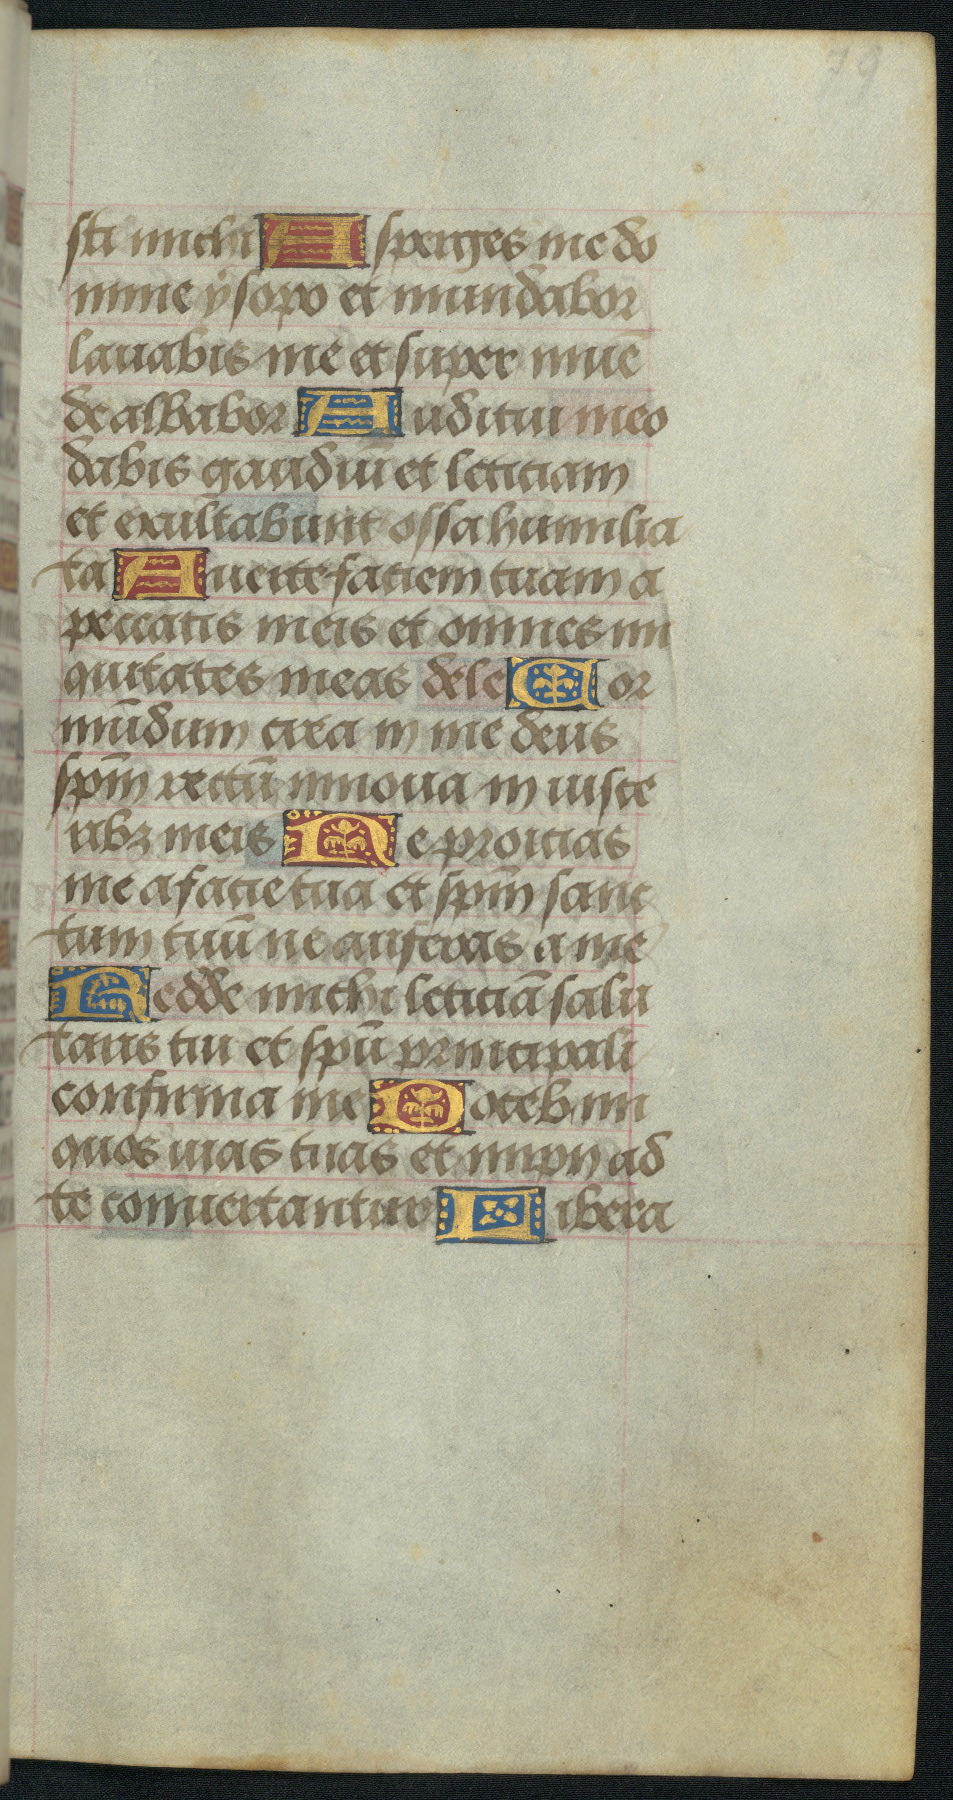 79
sti michi Asperges me do
mine ẏsopo et mundabor
lauabis me et super niuē
dealbabor Auditui meo
dabis gaudiū et leticiam
et exultabunt ossa humilia
ta Auerte faciem tuam a
peccatis meis et omnes ini
quitates meas dele Cor
mūdum crea in me deus
sp̄m rectū innoua in visce
ribꝫ meis Ne proicias
me a facie tua et sp̄m sanc
tum tuū ne auferas a me
Redde michi leticiā salu
taris tui et sp̄u principali
confirma me Docebo ini
quos vias tuas et impij ad
te conuertantur Libera